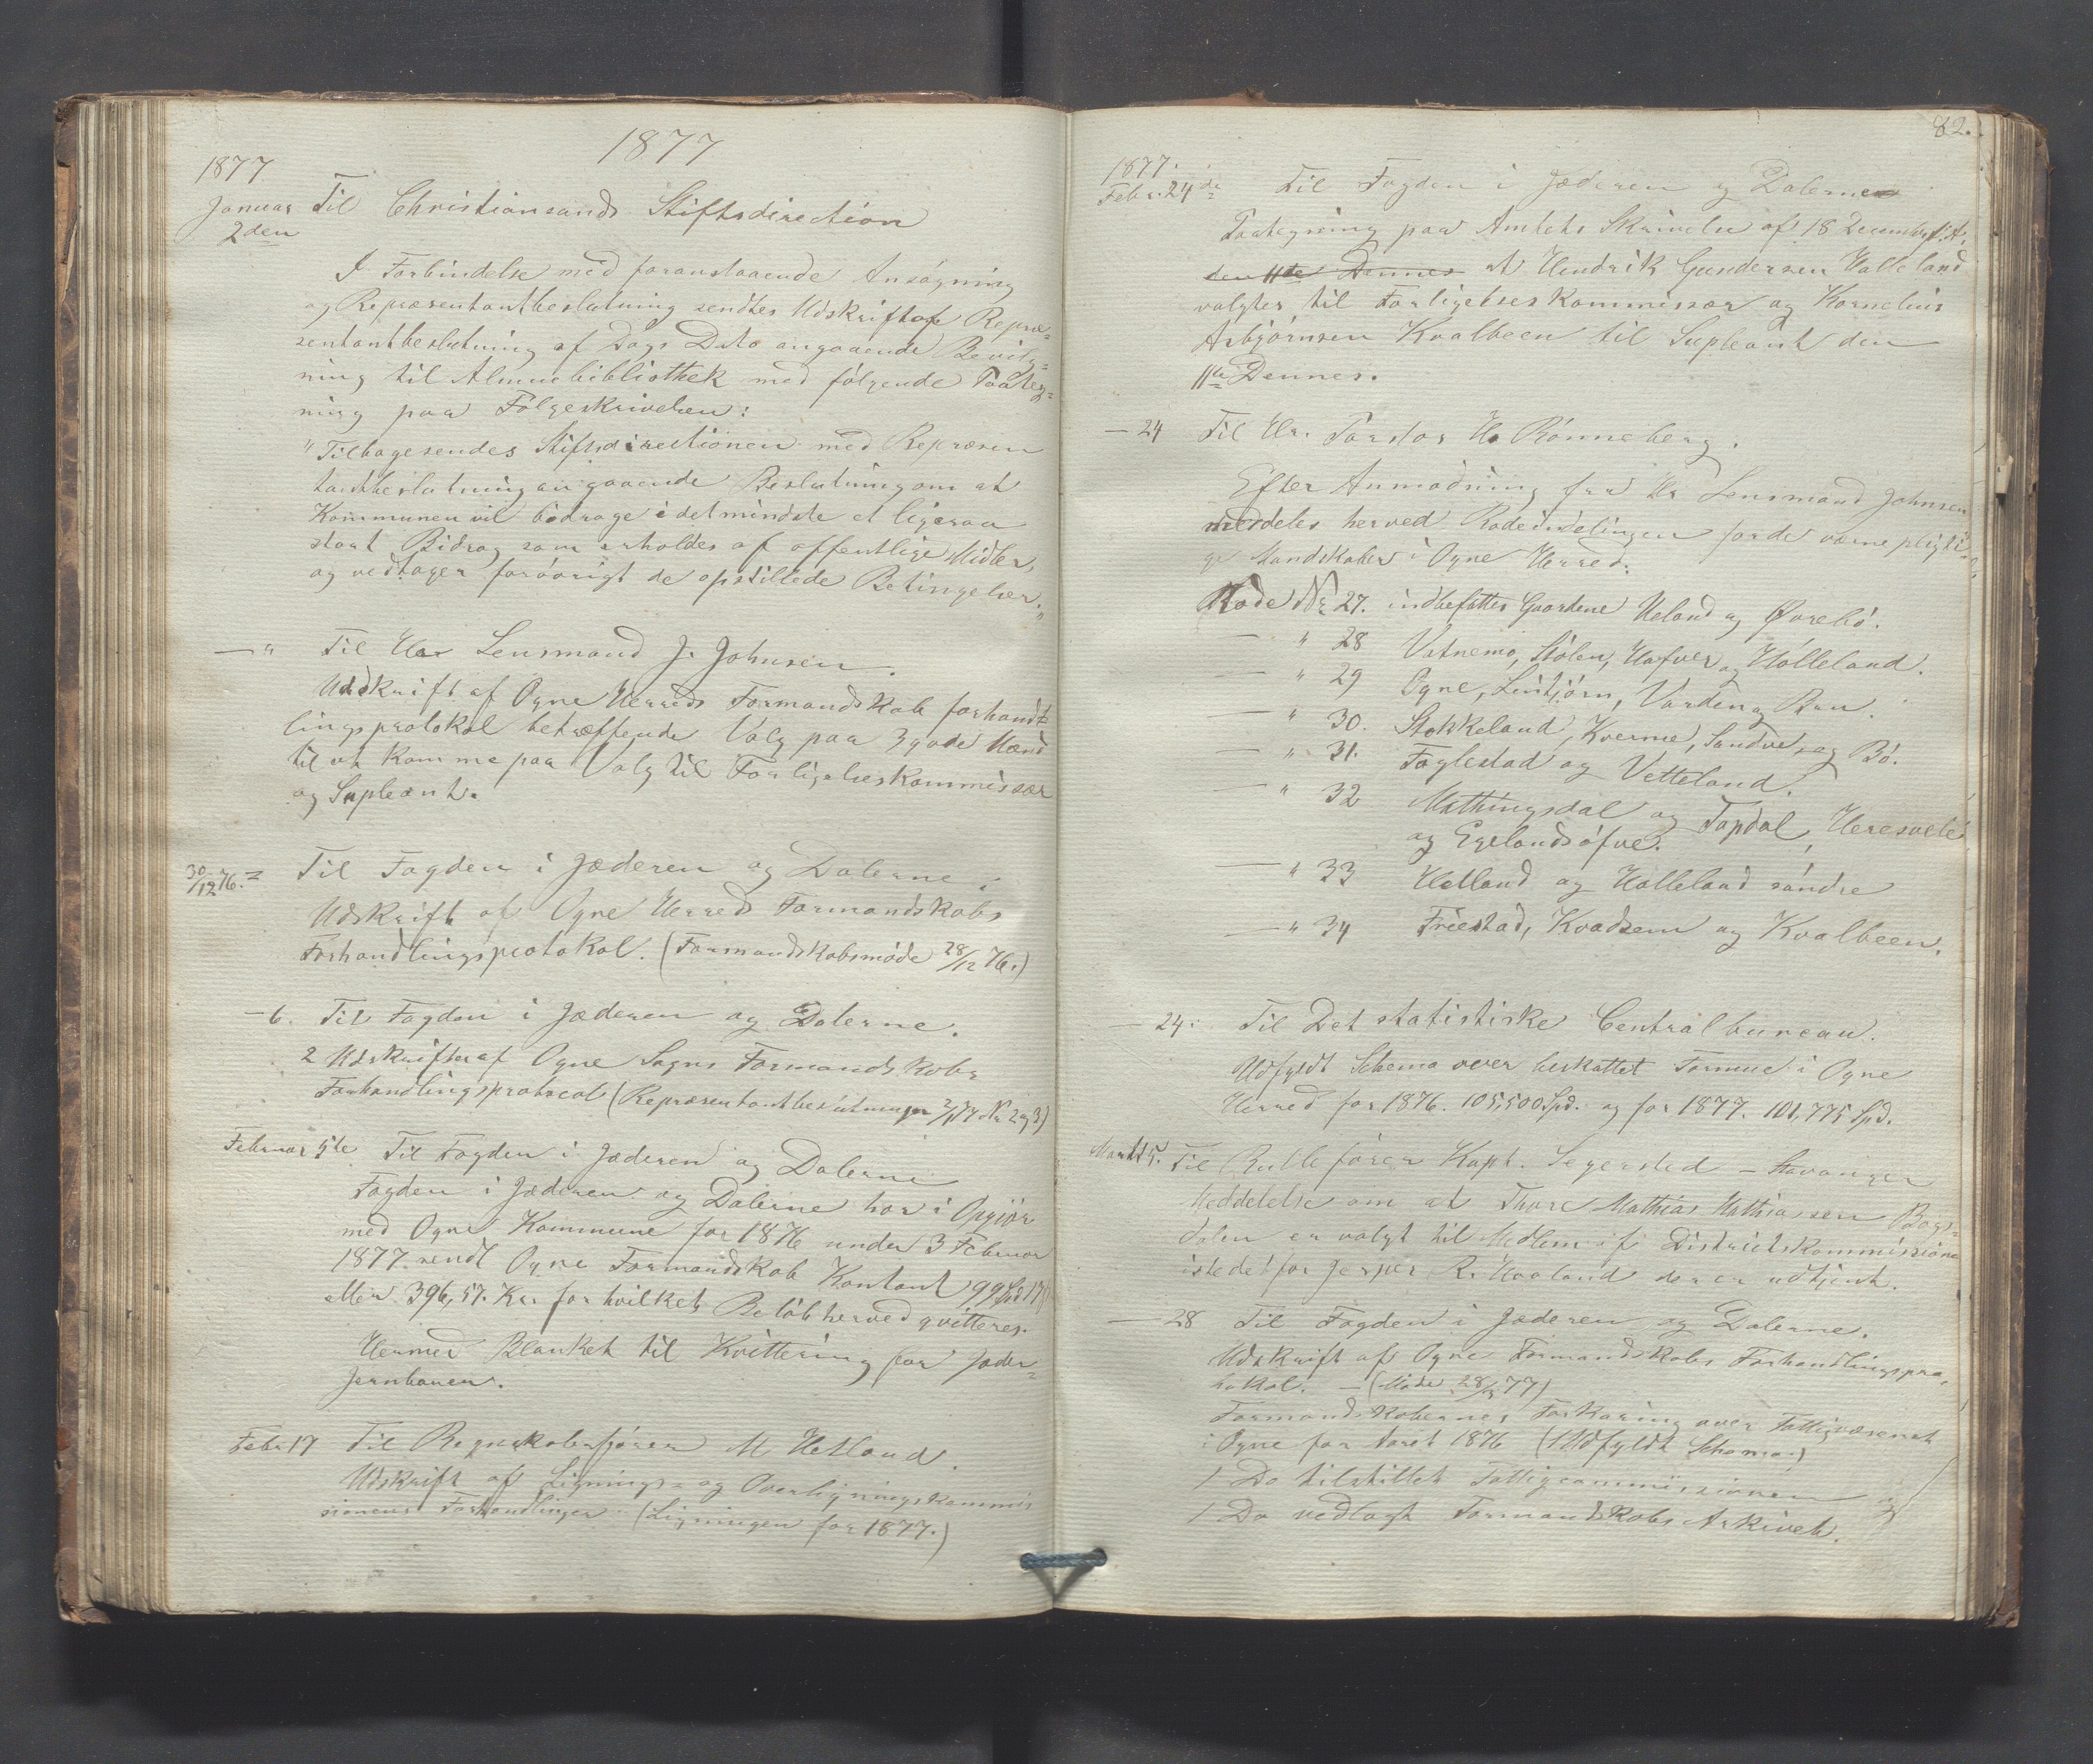 1877
1877
Januar Til Christiansands Stiftsdirection
2den
I Forbindelse med foranstaaende Ansøgning
og Repræsentantbeslutning sendtes Udskrift af Repræ=
sentantbeslutning af Dags Dato angaaende Bevilg=
ning til Almuebibliothek med følgende Paateg=
ning paa Følgeskrivelsen:
"Tilbagesendes Stiftsdirectionen med Repræsen
tantbeslutning angaaende Beslutning om at
Kommunen vil bidrage i det mindste et ligesaa
stort Bidrag som erholdes af offentlige Midler,
og vedtager forøvrigt de opstillede Betingelser."
— " Til Herr Lensmand J. Johnsen.
Udskrift af Ogne Herreds Formandskab forhand=
lingsprotokol betræffende Valg paa 3 gode Mænd
til at komme paa Valg til Forligelseskommissær
og Supleant.
30/12 76. = Til Fogden i Jæderen og Dalerne.
Udskrift af Ogne Herreds Formandskabs
Forhandlingsprotokol. (Formandskabsmøde 28/12 76.)
— 6. Til Fogden i Jæderen og Dalerne.
2 Udskrifter af Ogne Sogns Formandskabs
Forhandlingsprotocol (Repræsentantbeslutninger 2/1 77 Nr 2 og 3)
Februar 5te Til Fogden i Jæderen og Dalerne
Fogden i Jæderen og Dalerne har i Opgjør
med Ogne Kommune for 1876 under 3 Februar
1877 sendt Ogne Formandskab Kontant 99 Spd 17
eller 396,57. Kr. for hvilket Beløb herved qvitteres.
Hermed Blanket til Kvittering for Jæder=
Jernbanen.
Febr 17 Til Regnskabsfører M Hetland.
Udskrift af Lignings- og Overligningskommis
sionens Forhandlinger (Ligningen for 1877.)
82.
1877.
Febr. 24de Til Fogden i Jæderen og Dalerne
Paategning paa Amtets Skrivelse af 18 December f. A.
den 11te Dennes At Hendrik Gundersen Halleland
valgtes til Forligelseskommissær og Kornelius
Asbjørnsen Kvalbeen til Supleant den
11te Dennes.
— 24 Til Hr. Pastor H. Rønneberg.
Efter Anmodning fra Hr Lensmand Johnsen
meddeles herved Rodeindelingen for de værnepligti=
ge Mandskaber i Ogne Herred:
Rode Nr 27. indbefatter Gaardene Ueland og Øvrebø.
— " 28 Vatnemo, Stølen, Hafver og Hølleland.
— " 29 Ogne, Lintjørn, Varden og Bru.
— " 30. Stokkeland, Kverme, Sandve, og Bø.
— " 31. Foglestad og Vetteland.
— " 32 Mathingsdal og Topdal, Heresvele
og Egelandsøfve.
— " 33 Helland og Halleland søndre
— " 34 Friestad, Kvadsem og Kvalbeen.
— 24. Til Det statistiske Centralbureau.
Udfyldt Schema over beskattet Formue i Ogne
Herred for 1876. 105,500 Spd. og for 1877. 101,775 Spd.
Marts 5. Til Rullefører Kapt. Segersted — Stavanger
Meddelelse om at Thore Mathias Mathiassen Bogs=
dalen er valgt til Medlem af Districtskommissionen
istedetfor Jesper R. Hovland der er udtjent.
— 28 Til Fogden i Jæderen og Dalerne.
Udskrift af Ogne Formandskabs Forhandlingspro=
tokol. — (Møde 28/3 77)
Formandskabernes Forkaring over Fattigvæsenet
i Ogne for Aaret 1876 (1 Udfyldt Schema)
1 Do tilstillet Fattigcommissionen og
1 Do vedlagt Formandskabs Arkivet.